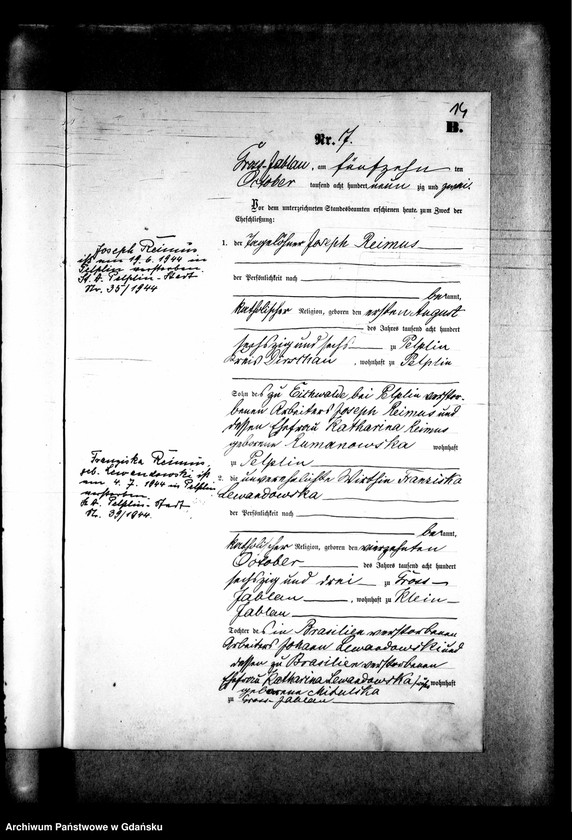 14
B.
Nr. 17.
Gross-Jablau, am fünfzehn ten
October tausend acht hundert neun zig und zwei.
Vor dem unterzeichneten Standesbeamten erschienen heute zum Zweck der
Eheschließung:
1. der Tagelöhner Joseph Reimus
der Persönlichkeit nach
be kannt,
katholischer Religion, geboren den ersten August
des Jahres tausend acht hundert
sechszig und sechs zu Pelplin
Kreis Dirschau, wohnhaft zu Pelplin
Sohn des zu Eichwalde bei Pelplin verstor-
benen Arbeiters Joseph Reimus und
dessen Ehefrau Katharina Reimus
geborene Rumanowska wohnhaft
zu Pelplin
2. die unverehelichte Wirthin Franziska
Lewandowska
der Persönlichkeit nach
be kannt,
katholischer Religion, geboren den vierzehnten
October des Jahres tausend acht hundert
sechszig und drei zu Gross-
Jablau, wohnhaft zu Klein-
Jablau
Tochter des in Brasilien verstorbenen
Arbeiters Johann Lewandowski und
dessen zu Brasilien verstorbenen
Ehefrau Katharina Lewandowska wohnhaft
geborene Mikulska
zu Gross-Jablau
Joseph Reimus
ist am 19. 6. 1944 in
Pelplin verstorben.
St. A. Pelplin-Stadt
Nr. 35/1944
Franziska Reimus,
geb. Lewandowski ist
am 4. 7. 1944 in Pelplin
verstorben.
St. A. Pelplin-Stadt
Nr. 39/1944.
Archiwum Państwowe w Gdańsku